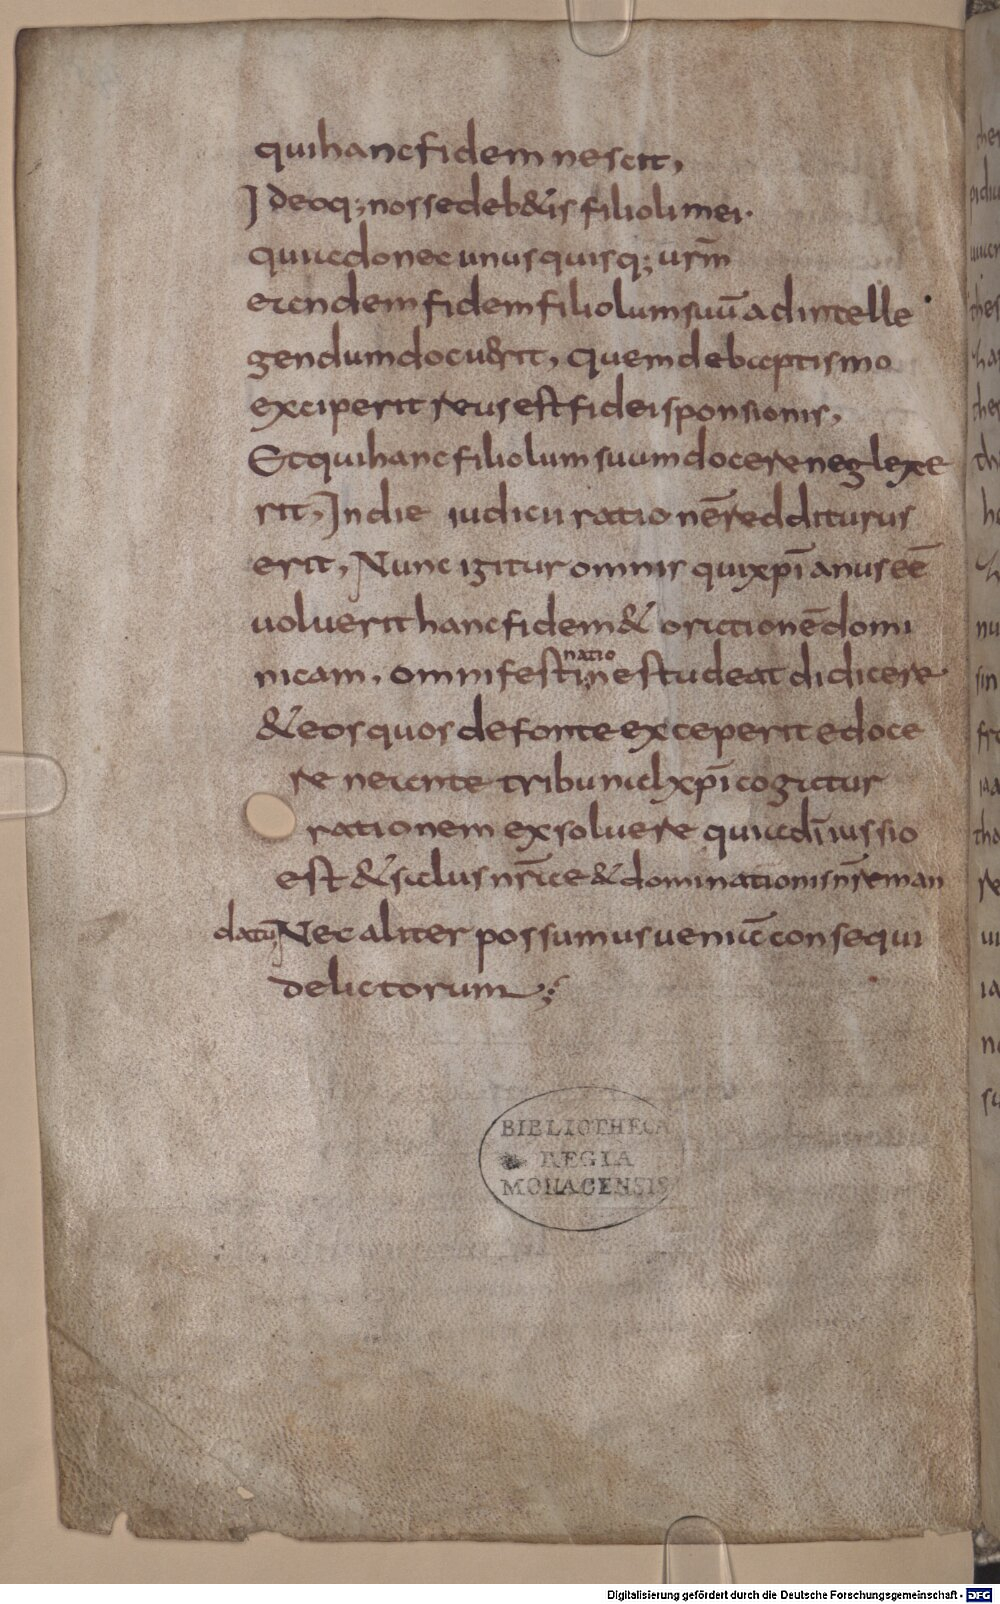 qui hanc fidem nescit,
Ideoq; nosse deb&is filioli mei.
quia donec unusquisq; urm̄
eandem fidem filiolum suū ad intelle
gendum docu&rit, quem de baptismo
exciperit reus est fidei sponsionis,
Et qui hanc filiolum suum docere neglexe
rit, In die iudicii rationē redditurus
erit, Nunc igitur omnis qui xp̄ianus eē
voluerit hanc fidem & orationē domi
nicam, omni festinatione studeat didicere
& eos quos de fonte exceperit edoce
re ne ante tribunal xp̄i cogatur
rationem exsolvere quia dī iussio
est & salus nr̄a & dominationis nr̄e man
datū Nec aliter possumus veniā consequi
delictorum
BIBLIOTHECA
REGIA
MONACENSIS
Digitalisierung gefördert durch die Deutsche Forschungsgemeinschaft - DFG